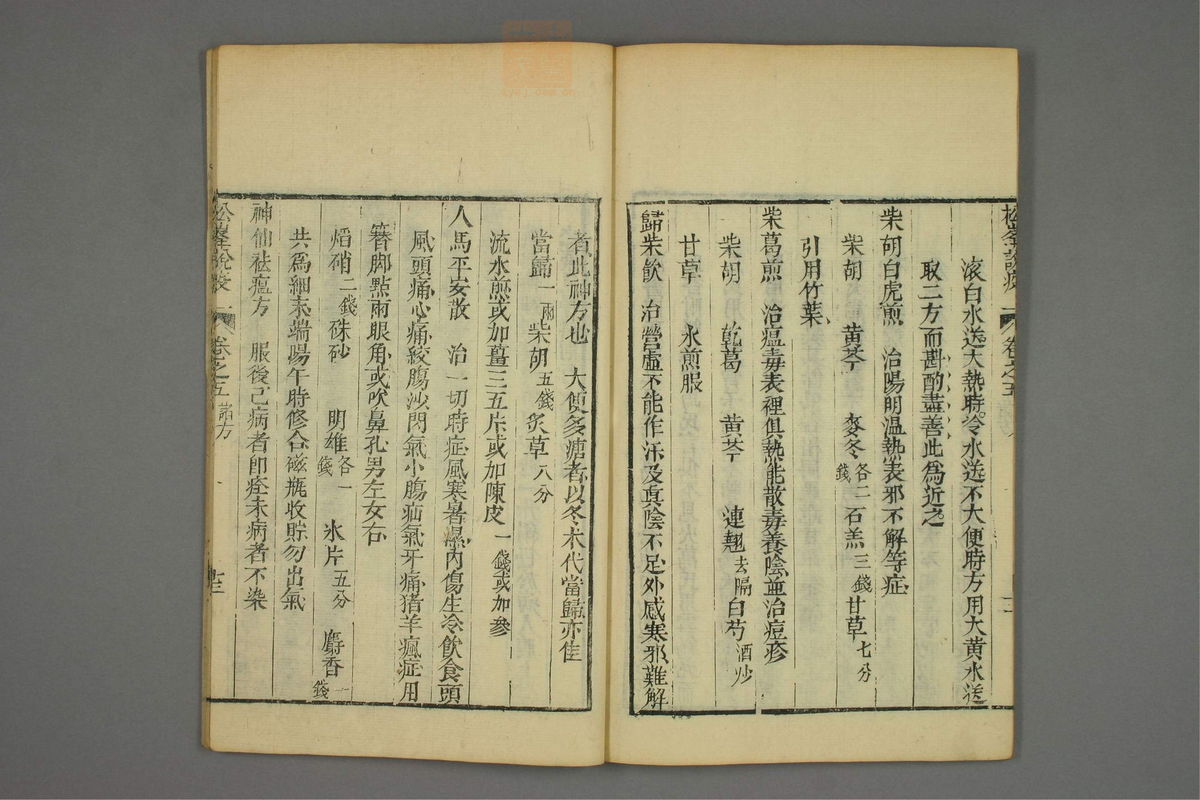 滾白水送大熱時冷水送不大便時方用大黃水送
取二方而斟酌盡善此為近之
柴胡白虎煎　治陽明温熱表邪不解等症
柴胡　黃芩　麥冬各二錢　石羔三錢　甘草七分
引用竹葉
柴葛煎　治瘟毒表裡俱熱能散毒養陰並治痘疹
柴胡　乾葛　黃芩　連翹去隔　白芍酒炒
甘草　水煎服
歸柴飲　治營虛不能作汗及真陰不足外感寒邪難解
者此神方也　大便多溏者以冬术代當歸亦佳
當歸一兩　柴胡五錢　炙草八分
流水煎或加薑三五片或加陳皮一錢或加參
人馬平安散　治一切時症風寒暑濕內傷生冷飲食頭
風頭痛心痛絞腸沙悶氣小腸疝氣牙痛猪羊瘋症用
簪脚點兩眼角或吹鼻孔男左女右
焰硝二錢　硃砂　明雄各一錢　氷片五分　麝香一錢
共為細末端陽午時修合磁瓶收貯勿出氣
神仙祛瘟方　服後已病者即痊未病者不染
松峯說疫　卷之五　諸方